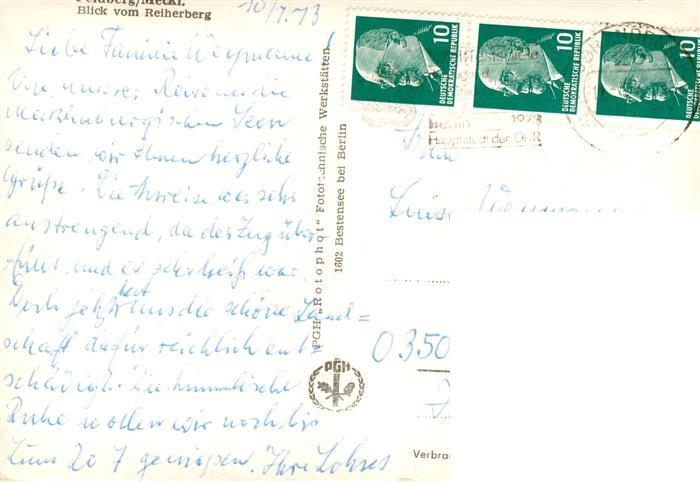 Feldberg/Meckl.
Blick vom Reiherberg
10/7.73
Liebe Familie
Von unserer Reise an die
Mecklenburgischen Seen
senden wir Ihnen herzliche
Grüße. Die Anreise war sehr
anstrengend, da der Zug über-
füllt und es sehr heiß war.
Doch jetzt hat uns die schöne Land=
schaft dafür reichlich ent=
schädigt. Die himmlische
Ruhe wollen wir noch bis
zum 20.7 genießen. Ihre Lohses
PGH „Rotophot“ Fototechnische Werkstätten
1602 Bestensee bei Berlin
PGH
10
DEUTSCHE
DEMOKRATISCHE REPUBLIK
10
DEUTSCHE
DEMOKRATISCHE REPUBLIK
10
DEUTSCHE
DEMOKRATISCHE REPUBLIK
Berlin 1973
Hauptstadt der DDR
Frau
Luise
0350
Verbra